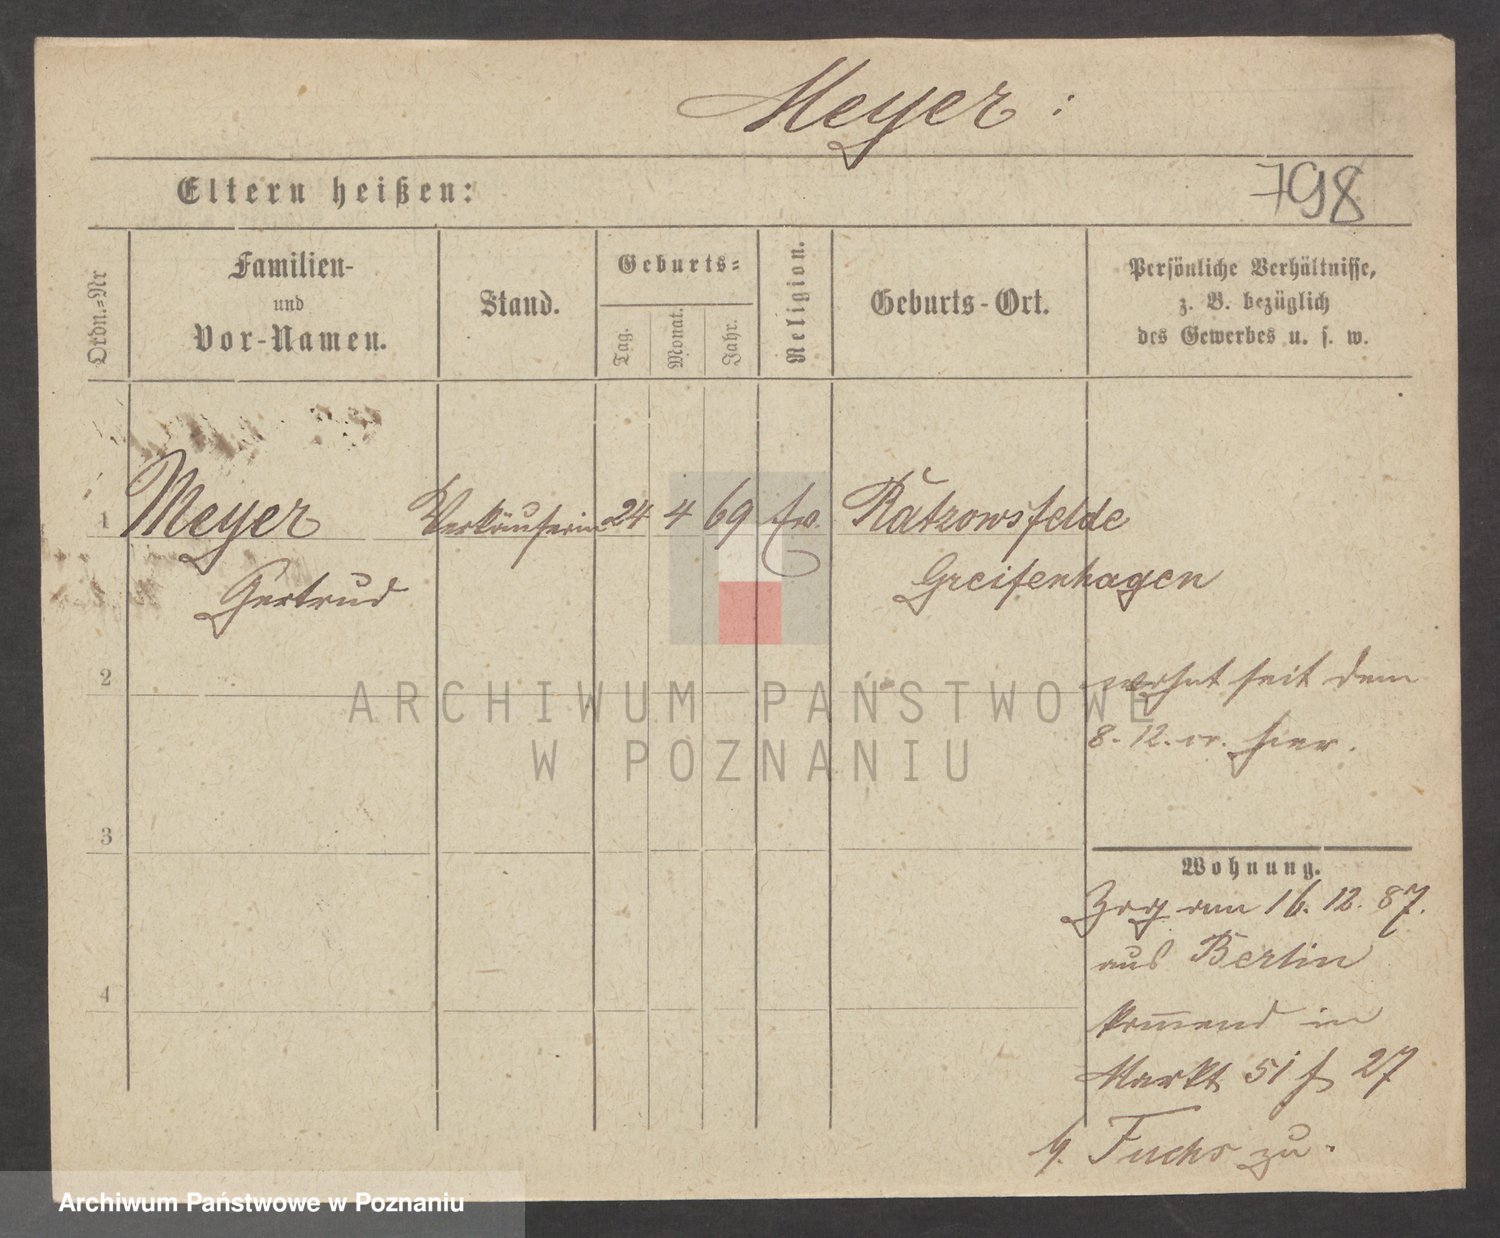 Meyer :
Eltern heißen:
798
Ordn.=Nr
Familien-
und
Vor-Namen.
Stand.
Geburts=
Tag.
Monat.
Jahr.
Religion.
Geburts-Ort.
Persönliche Verhältnisse,
z. B. bezüglich
des Gewerbes u. s. w.
1 Meyer Verkäuferin 24 4 69 Ev. Ratzowsfelde
Gertrud Greifenhagen
2
wohnt seit dem
8. 12. cr. hier.
ARCHIWUM PAŃSTWOWE
W POZNANIU
3
Wohnung.
Zog am 16. 12. 87.
aus Berlin
4
kommend in
Markt 51 27
b. Fuchs zu.
Archiwum Państwowe w Poznaniu